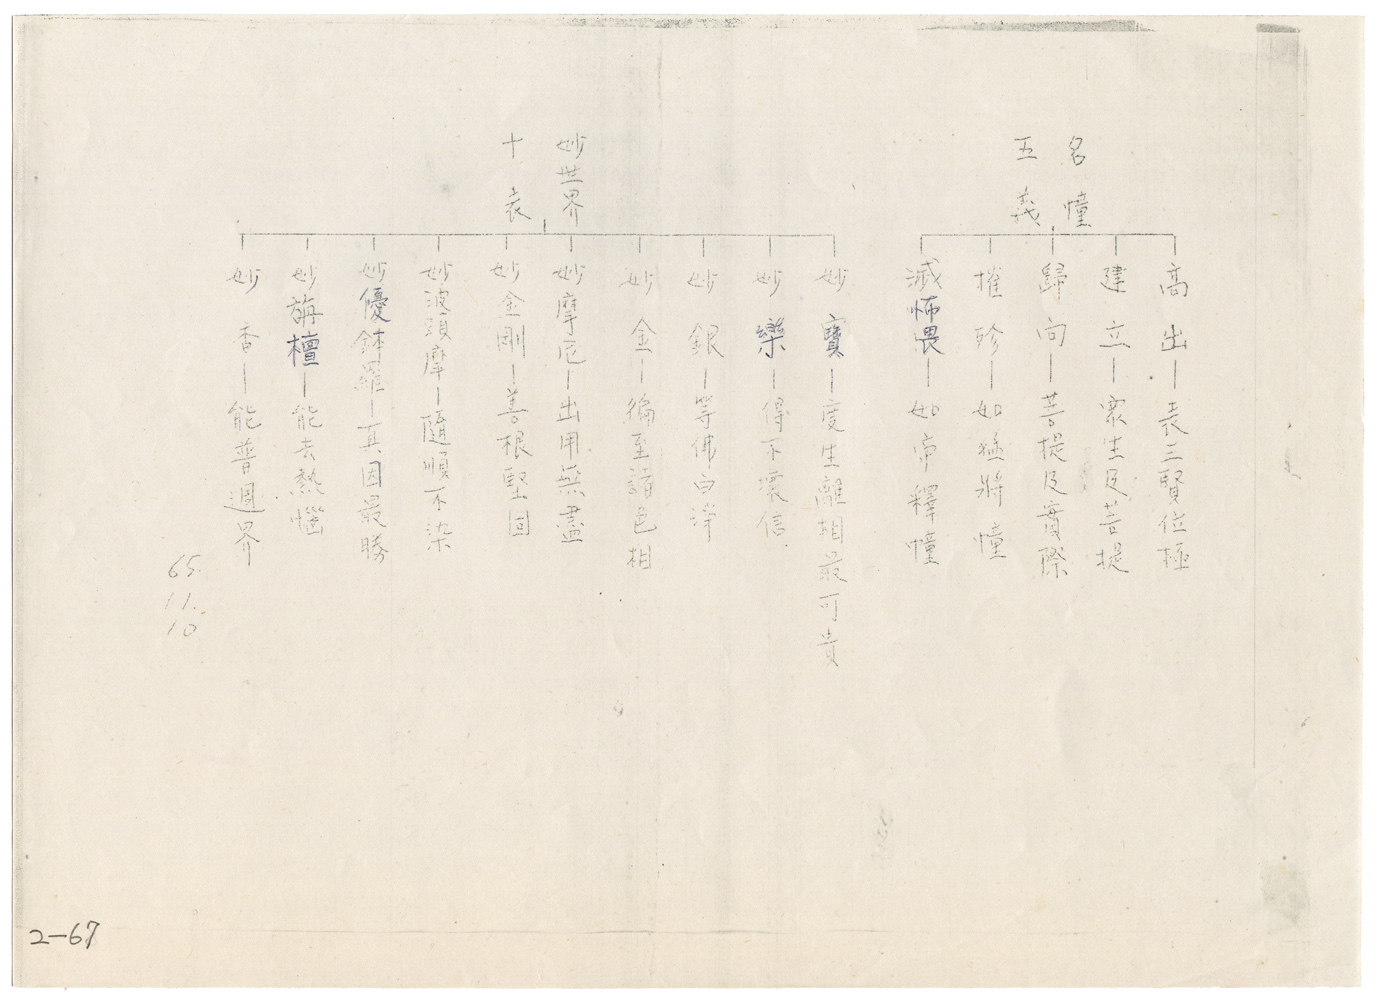 名幢
五義
高出—表三賢位極
建立—眾生及菩提
歸向—菩提及實際
摧殄—如猛將幢
滅怖畏—如帝釋幢
妙世界
十表
妙寶—度生離相最可貴
妙樂—得不壞信
妙銀—等佛白淨
妙金—徧至諸色相
妙摩尼—出用無盡
妙金剛—善根堅固
妙波頭摩—隨順不染
妙優鉢羅—真因最勝
妙旃檀—能去熱惱
妙香—能普週界
65.
11.
10
2-67